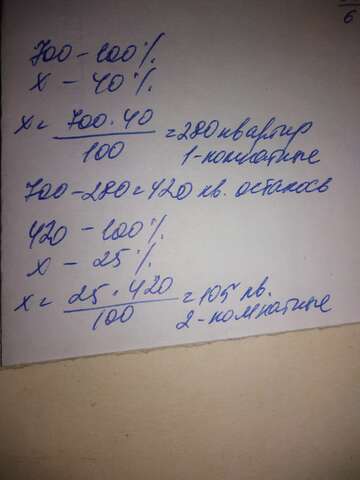 700 - 100%
x - 40%
x = 700 · 40 / 100 = 280 квартир
1-комнатные
700 - 280 = 420 кв. осталось
420 - 100%
x - 25%
x = 25 · 420 / 100 = 105 кв.
2-комнатные
6